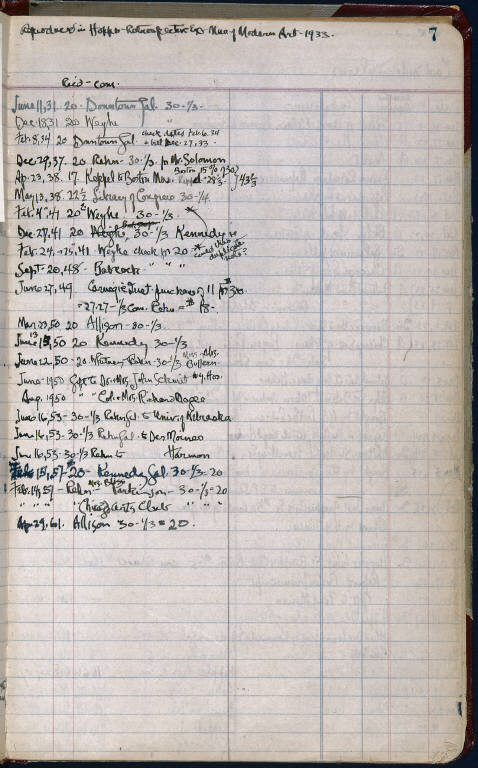 Reproduced in Hopper Retrospective Ex Mus. of Modern Art - 1933.
7
Rec'd - com.
June 11, 31 20 - Downtown Gal. 30 - 1/3.
Dec. 18, 31 20 Weyhe "
Feb. 8, 34 20 Downtown Gal. check dated Feb. 6. 34
Dec. 27, 33
Dec. 29, 37. 20 Rehn - 30 - 1/3. Mr. Solomon
Ap. 23, 38. 17 Keppel to Boston Mus.
May 13, 38. 22 1/2 Library of Congress 30 - 1/4
Feb. 4, 41 20 Weyhe 30 - 1/3
Dec. 27, 41 20 30 - 1/3 Kennedy
Feb. 24, 41 Weyhe check for 20
duplicate
Sept. 20, 48 - Babcock " "
June 27, 49 Carnegie Inst. purchase of 11
= 27.27 - 1/3 Com. Rehn = $18 -
Mar. 23, 50 20 Allison - 30 - 1/3
June 13, 50 20 Kennedy 30 - 1/3
June 22, 50 - 20 - Whitney Rehn - 30 - 1/3
June - 1950 Gift to Dr. + Mrs. John
Aug. 1950 " " Col. + Mrs. Richard
June 16, 53 - 30 - 1/3 Rehn Gal. to Univ. of Nebraska
June 16, 53 - 30 - 1/3 Rehn Gal. to Des Moines
June 16, 53 - 30 - 1/3 Rehn to Harmon
Feb. 15, 57 - 20 - Kennedy Gal. 30 - 1/3 = 20
Feb. 14, 57 - Rehn - Parkinson - 30 - 1/3 = 20
" " " " Chicago Arts Club " " "
Ap. 29, 61. Allison 30 - 1/3 = 20.